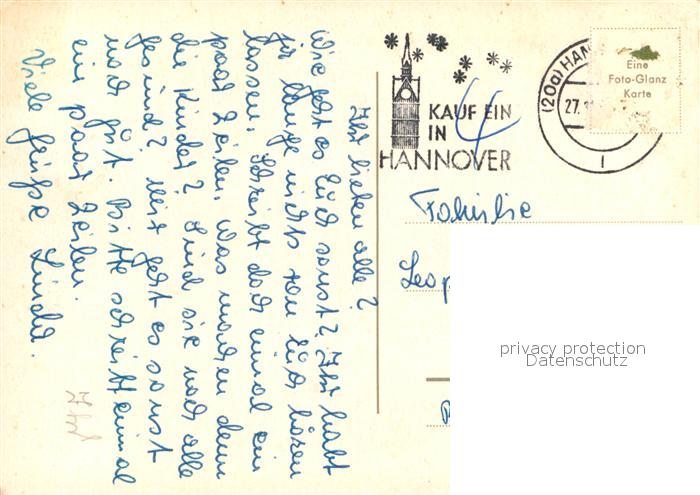 Ihr lieben alle?
Wie geht es Euch sonst? Ihr habt
ja lange nichts von Euch hören
lassen. Schreibt doch einmal ein
paar Zeilen. Was machen denn
die Kinder? Sind sie noch alle
gesund? Mir geht es sonst
noch gut. Bitte schreibt einmal
ein paar Zeilen.
Viele Grüße Linda.
KAUF EIN
IN
HANNOVER
(20a) HAN
27.
1
Eine
Foto-Glanz
Karte
Familie
Leop
privacy protection
Datenschutz